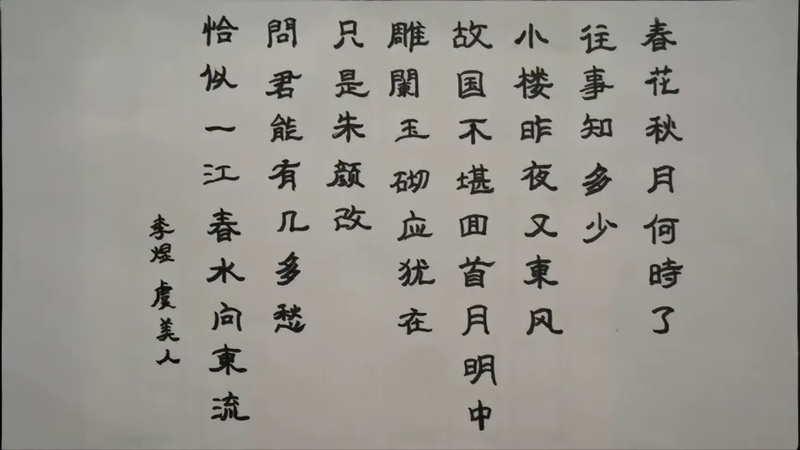 春花秋月何時了
往事知多少
小楼昨夜又東风
故国不堪回首月明中
雕闌玉砌应犹在
只是朱颜改
問君能有几多愁
恰似一江春水向東流
李煜 虞美人